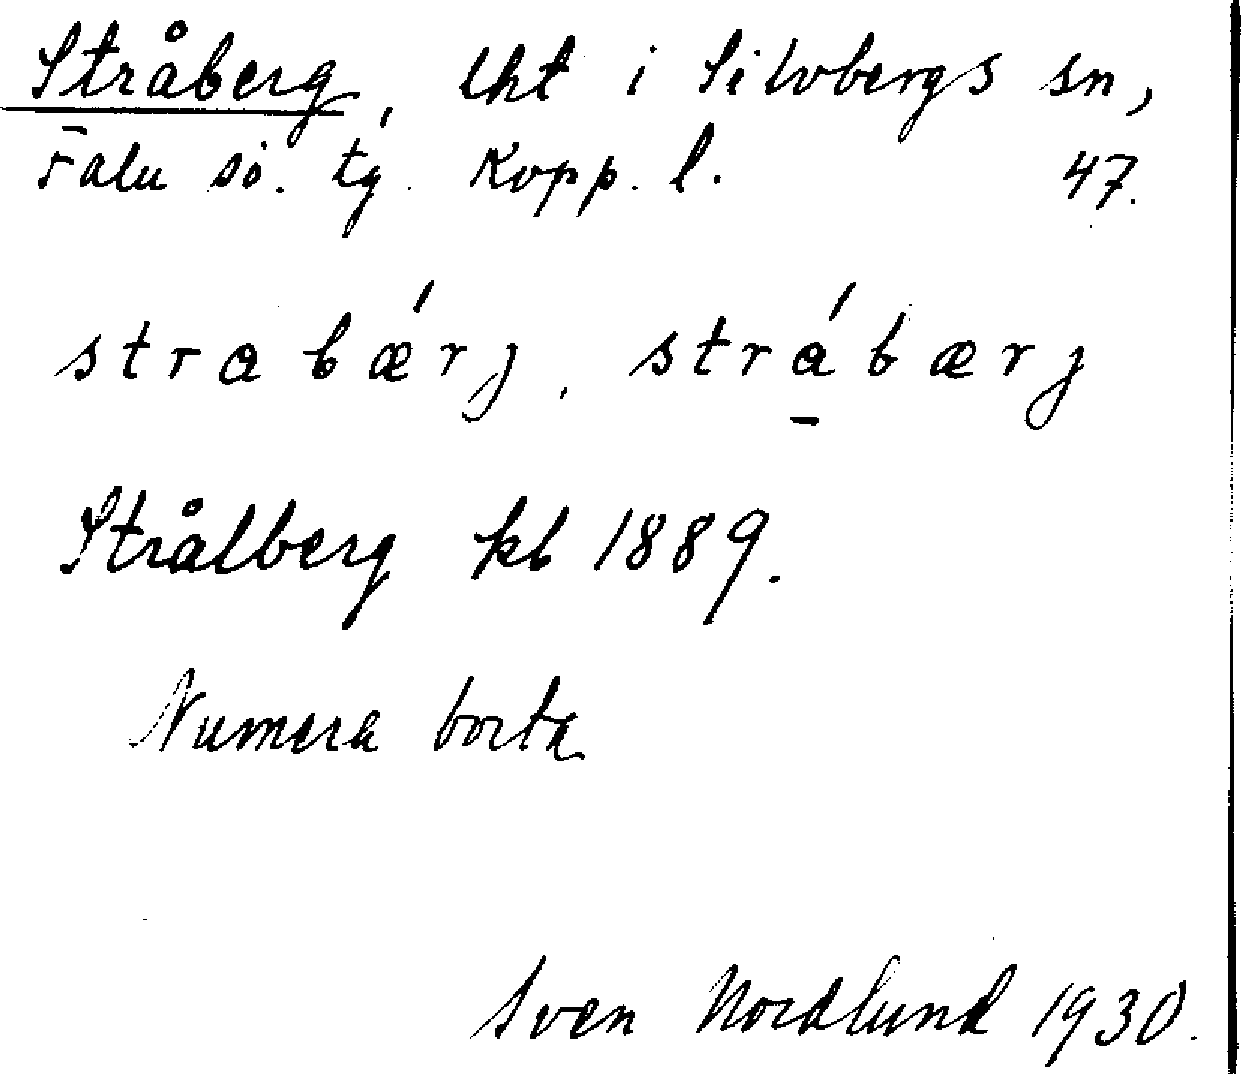 Stråberg, lht i Silvbergs sn,
Falu sö. tg. Kopp. l. 47.
strabǽrj, strá̱bærj
Strålberg kb 1889.
Numera borta
Sven Nordlund 1930.